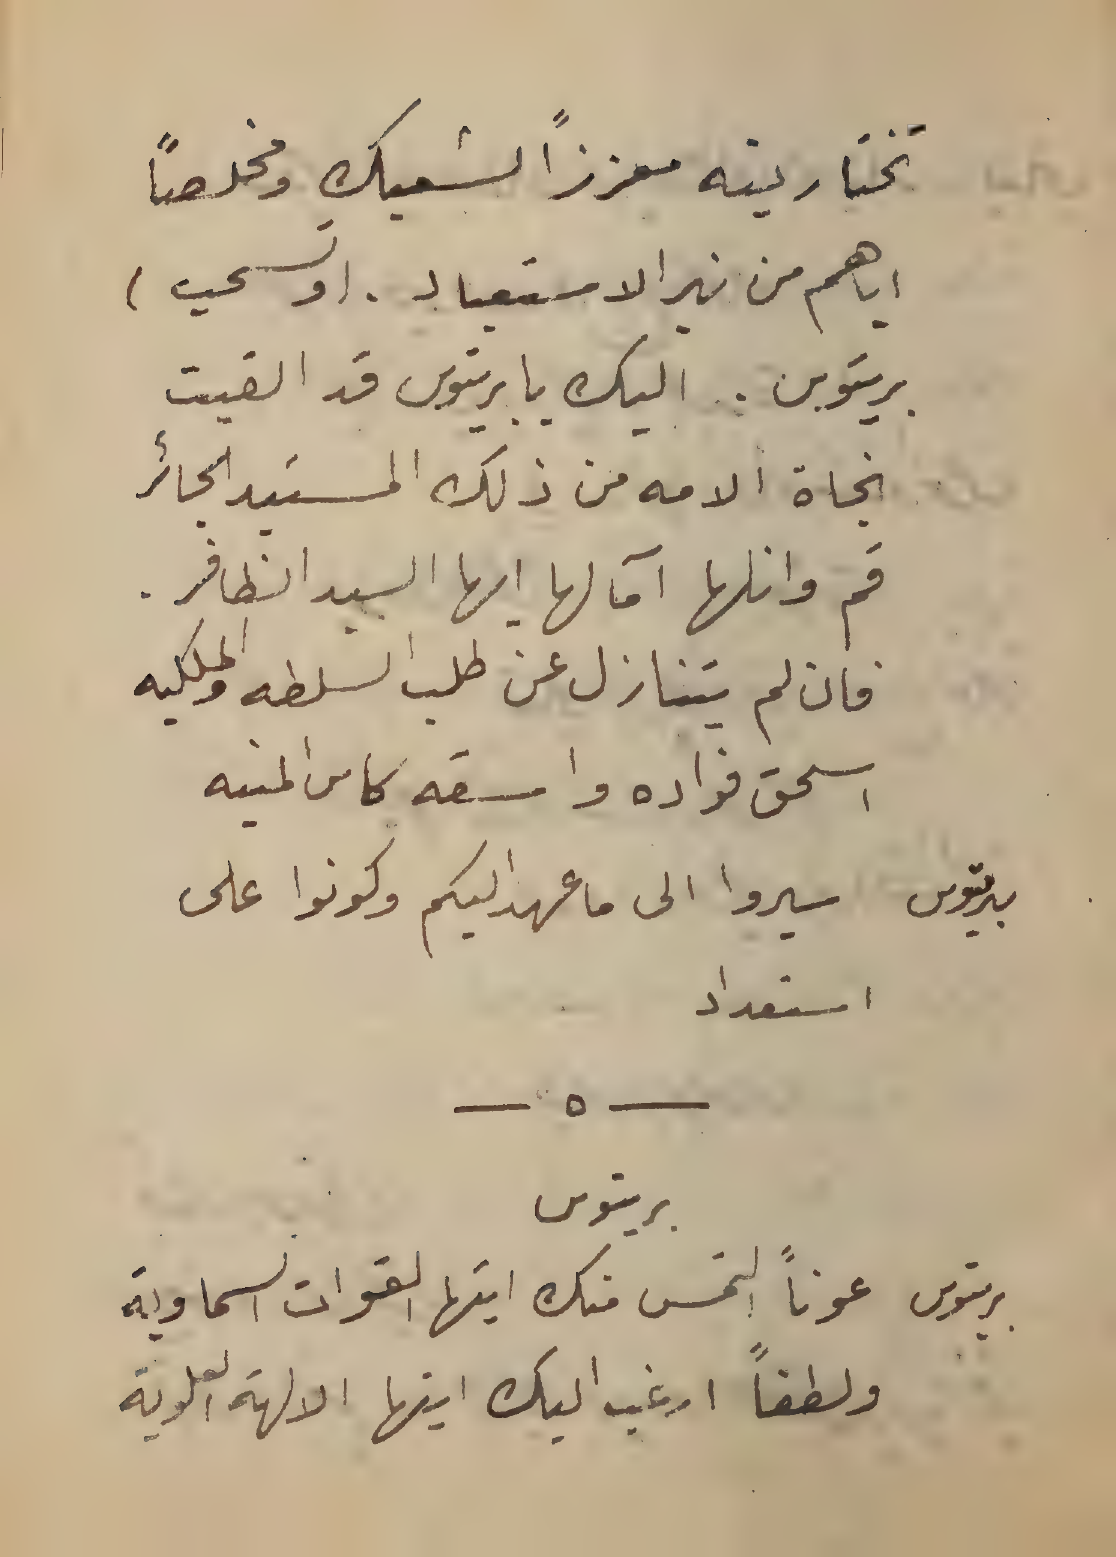 تختارينه معززاً لشعبك ومخلصاً
اياهم من نير الاستعباد . (وتسحب)
بريتوس . اليك يا بريتوس قد القيت
نجاة الامه من ذلك المستبد الجائر
قم وانلها آمالها ايها السيد الظافر .
فان لم يتنازل عن طلب السلطه والملكيه
اسحق فواده واسقه كاس المنيه
بريتوس سيروا الى ما عهد اليكم وكونوا على
استعداد
— ٥ —
بريتوس
بريتوس عوناً التمس منك ايتها القوات السماوية
ولطفاً ارغب اليك ايتها الالهة العلوية